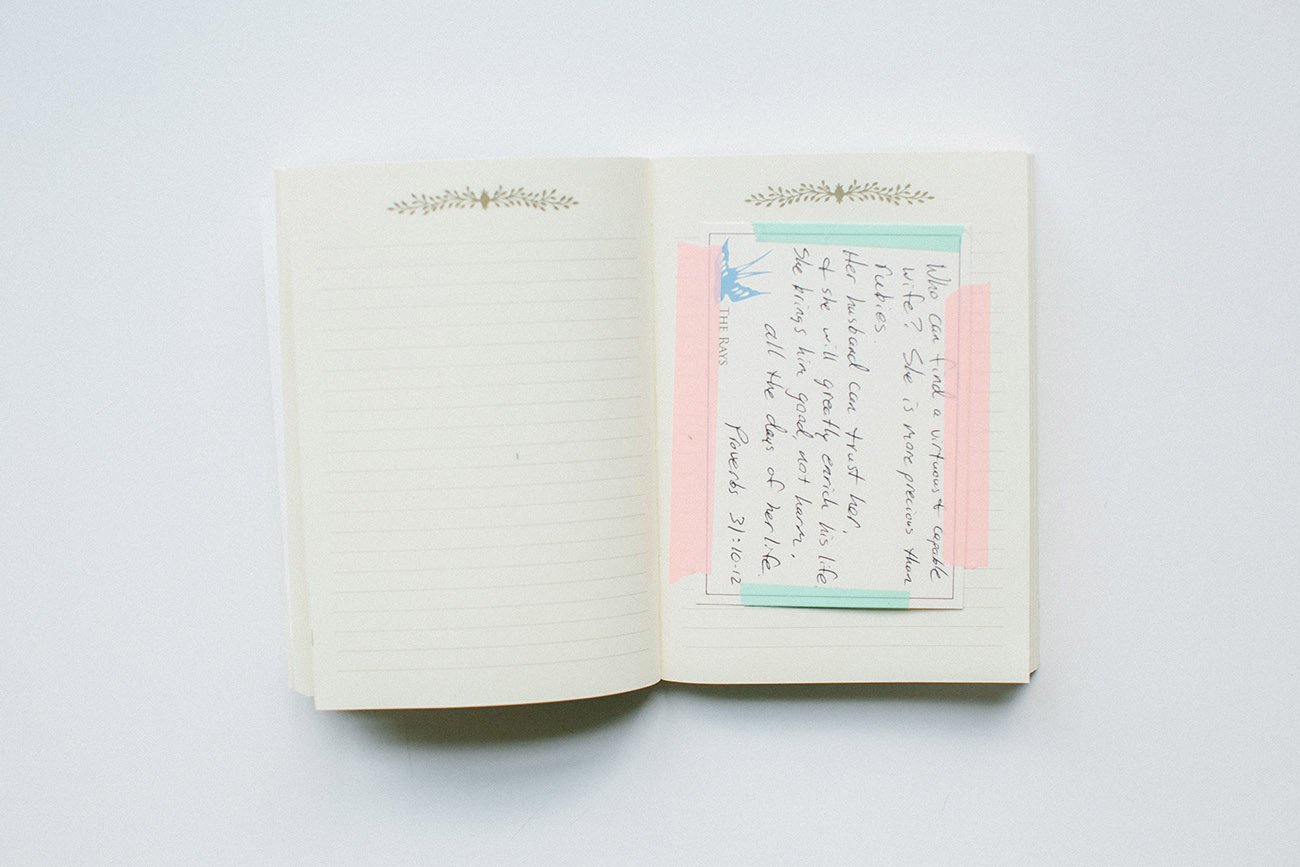 Who can find a virtuous & capable
wife? She is more precious than
rubies.
Her husband can trust her,
& she will greatly enrich his life.
She brings him good, not harm,
all the days of her life.
Proverbs 31:10-12
THE RAYS